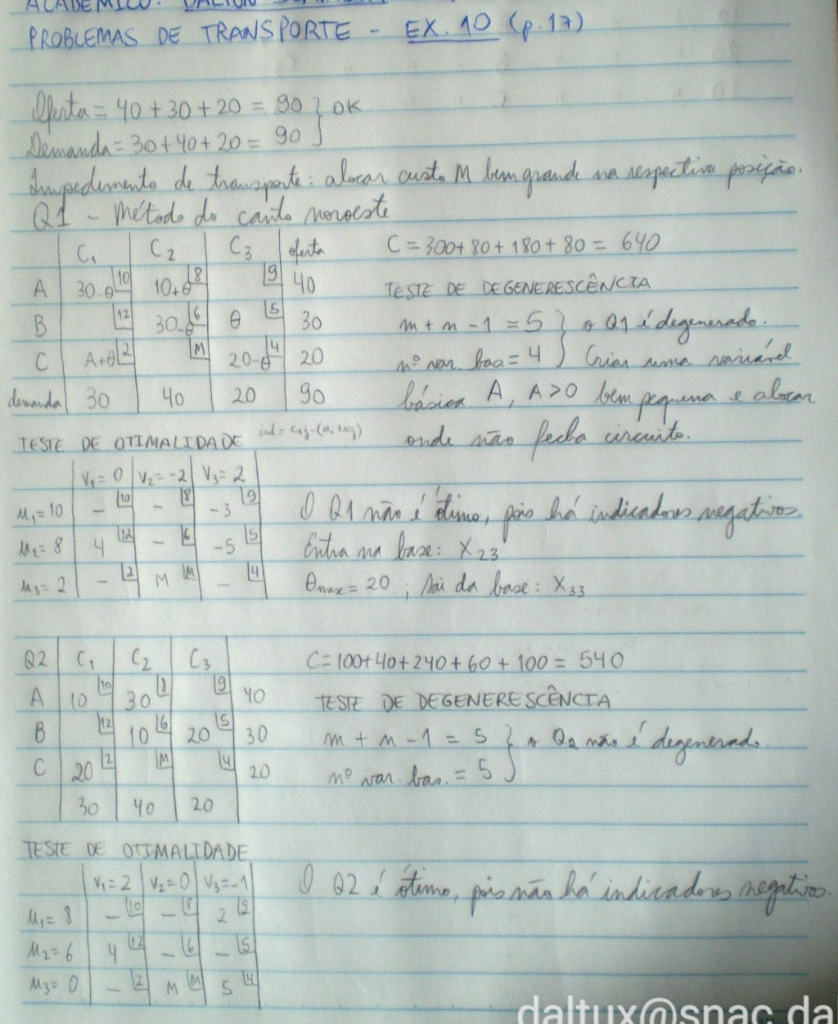 ACADÊMICO: DALTON
PROBLEMAS DE TRANSPORTE - EX. 10 (p.17)
Oferta = 40 + 30 + 20 = 90 } OK
Demanda = 30 + 40 + 20 = 90
Impedimento de transporte: alocar custo M bem grande na respectiva posição.
Q1 - Método do canto noroeste
C1 C2 C3 oferta C = 300 + 80 + 180 + 80 = 640
A 30-θ 10 10+θ 8 9 40 TESTE DE DEGENERESCÊNCIA
B 12 30-θ 6 θ 5 30 m + n - 1 = 5 } o Q1 é degenerado.
C A+θ 2 M 20-θ 4 20 nº var. bas = 4 } Criar uma variável
demanda 30 40 20 90 básica A, A>0 bem pequena e alocar
TESTE DE OTIMALIDADE ind = cij-(ui+vj) onde não fecha circuito.
V1=0 V2=-2 V3=2
μ1=10 - 10 - 8 -3 9 O Q1 não é ótimo, pois há indicadores negativos.
μ2=8 4 12 - 6 -5 5 Entra na base: X23
μ3=2 - 2 M M - 4 θmax = 20 ; sai da base: X33
Q2 C1 C2 C3 C = 100+40+240+60+100 = 540
A 10 10 30 8 9 40 TESTE DE DEGENERESCÊNCIA
B 12 10 6 20 5 30 m + n - 1 = 5 } o Q2 não é degenerado.
C 20 2 M 4 20 nº var. bas. = 5
30 40 20
TESTE DE OTIMALIDADE
V1=2 V2=0 V3=-1 O Q2 é ótimo, pois não há indicadores negativos.
μ1=8 - 10 - 8 2 9
μ2=6 4 12 - 6 - 5
μ3=0 - 2 M M 5 4
daltux@snac.da